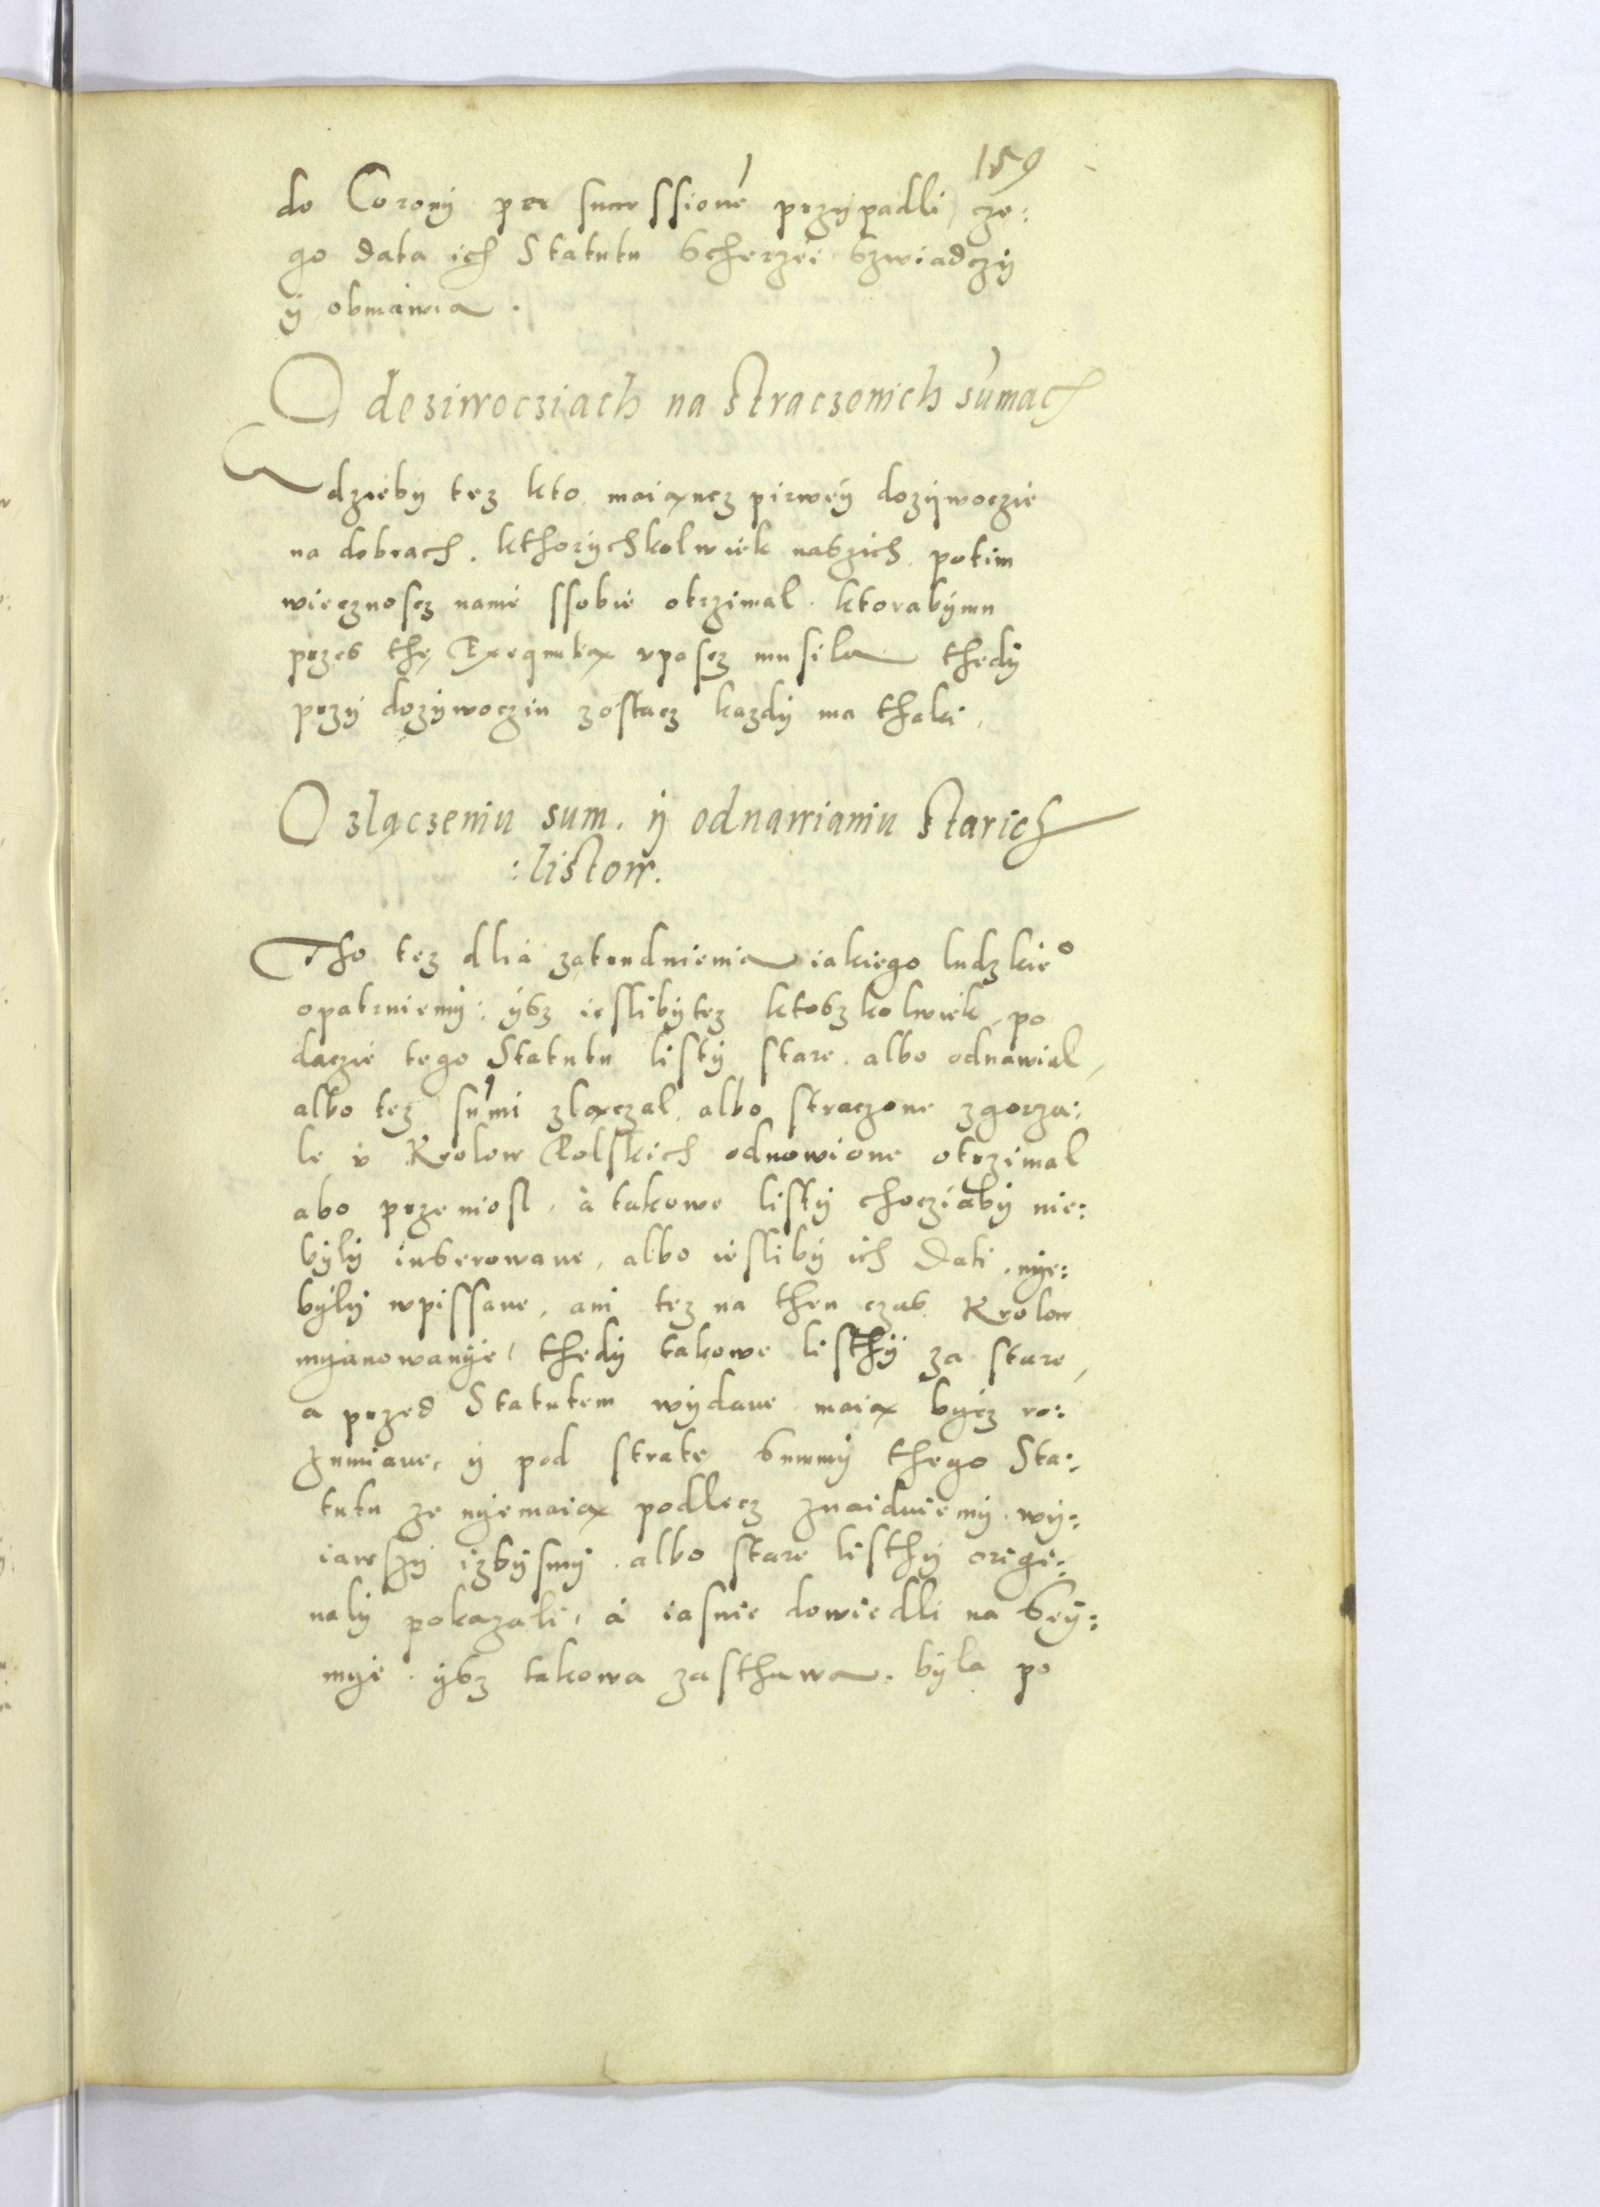 159
do Corony per sucessione przypadli, cze:
go data ich Statutu scherzei szwiadczy
y obmawia.
O dozirroczziach na straczonich sumach
Gdzieby tez kto maiancz pirwey dozywoczie
na dobrach. kthorychkolwiek naszich potim
wiecznoscz namie ssobie otrzimal. ktorabymu
przes thę Exequutią vposcz musila thedy
przy dozywocziu zostacz kazdy ma thaki,
O zlączeniu sum. y odnawianiu starich
:listow.
Tho tez dlia zatrudnienia iakiego ludzkie°
opatruiemy: ysz ieslibytez ktoszkolwiek, po
daczie tego Statutu listy stare. albo odnawial,
albo tez sumi zlączal, albo straczone zgorza:
le v Krolow Polskich odnowione otrzimal
abo przeniosl, a takowe listy chocziaby nie:
byly inserowane, albo iesliby ich Dati, nye:
byly wpissane, ani tez na then czas Krolow
myanowanye, thedy takowe listhy za stare,
a przed Statutem wydane maią bycz ro:
zumiane, y pod stratę summy thego Sta:
tutu ze nyemaią podlecz znaiduiemy. wy:
iawszy izbysmy. albo stare listhy origi:
naly pokazali, a iasnie dowiedli na sey:
mye. ysz takowa zasthawa. byla po